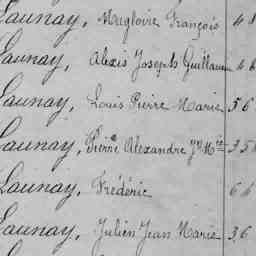 Launay, Magloire François 48
Launay, Alexis Joseph Guillaume 46
Launay, Louis Pierre Marie 56
Launay, Pierre Alexandre Jn Mie 35
Launay, Frédéric 66
Launay, Julien Jean Marie 36